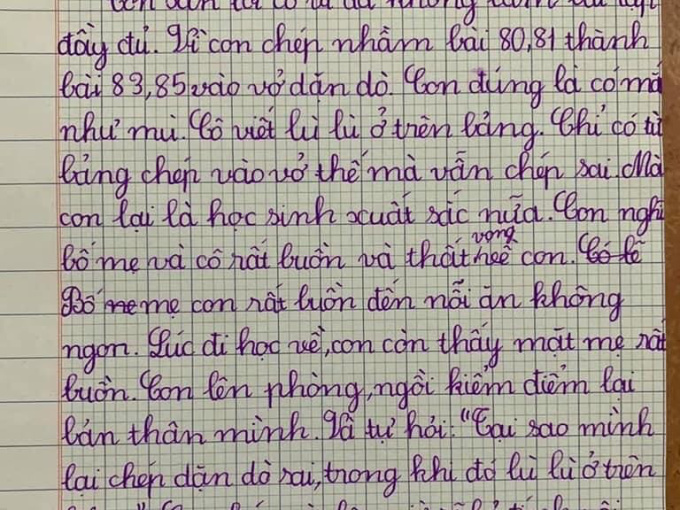 đầy đủ. Vì con chép nhầm bài 80,81 thành
bài 83,85 vào vở dặn dò. Con đúng là có mắt
như mù. Cô viết lù lù ở trên bảng. Chỉ có từ
bảng chép vào vở thế mà vẫn chép sai. Mà
con lại là học sinh xuất sắc nữa. Con nghĩ
bố mẹ và cô rất buồn và thất vọng về con. Có lẽ
Bố me mẹ con rất buồn đến nỗi ăn không
ngon. Lúc đi học về, con còn thấy mặt mẹ rất
buồn. Con lên phòng, ngồi kiểm điểm lại
bản thân mình. Và tự hỏi: "Tại sao mình
lại chép dặn dò sai, trong khi đó lù lù ở trên